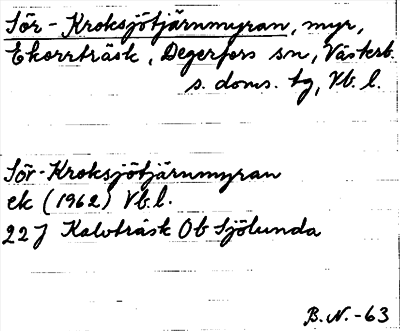 Sör-Kroksjötjärnmyran, myr,
Ekorrträsk, Degerfors sn, Västerb.
s. doms. tg, Vb. l.
Sör-Kroksjötjärnmyran
ek (1962) Vb. l.
22J Kalvträsk Ob Sjölunda
B. N. -63